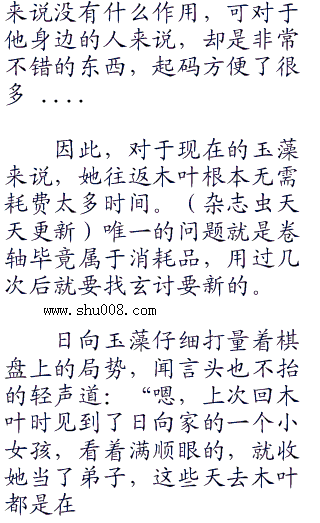 来说没有什么作用，可对于
他身边的人来说，却是非常
不错的东西，起码方便了很
多 ....
因此，对于现在的玉藻
来说，她往返木叶根本无需
耗费太多时间。（杂志虫天
天更新）唯一的问题就是卷
轴毕竟属于消耗品，用过几
次后就要找玄讨要新的。
www.shu008.com
日向玉藻仔细打量着棋
盘上的局势，闻言头也不抬
的轻声道：“嗯，上次回木
叶时见到了日向家的一个小
女孩，看着满顺眼的，就收
她当了弟子，这些天去木叶
都是在